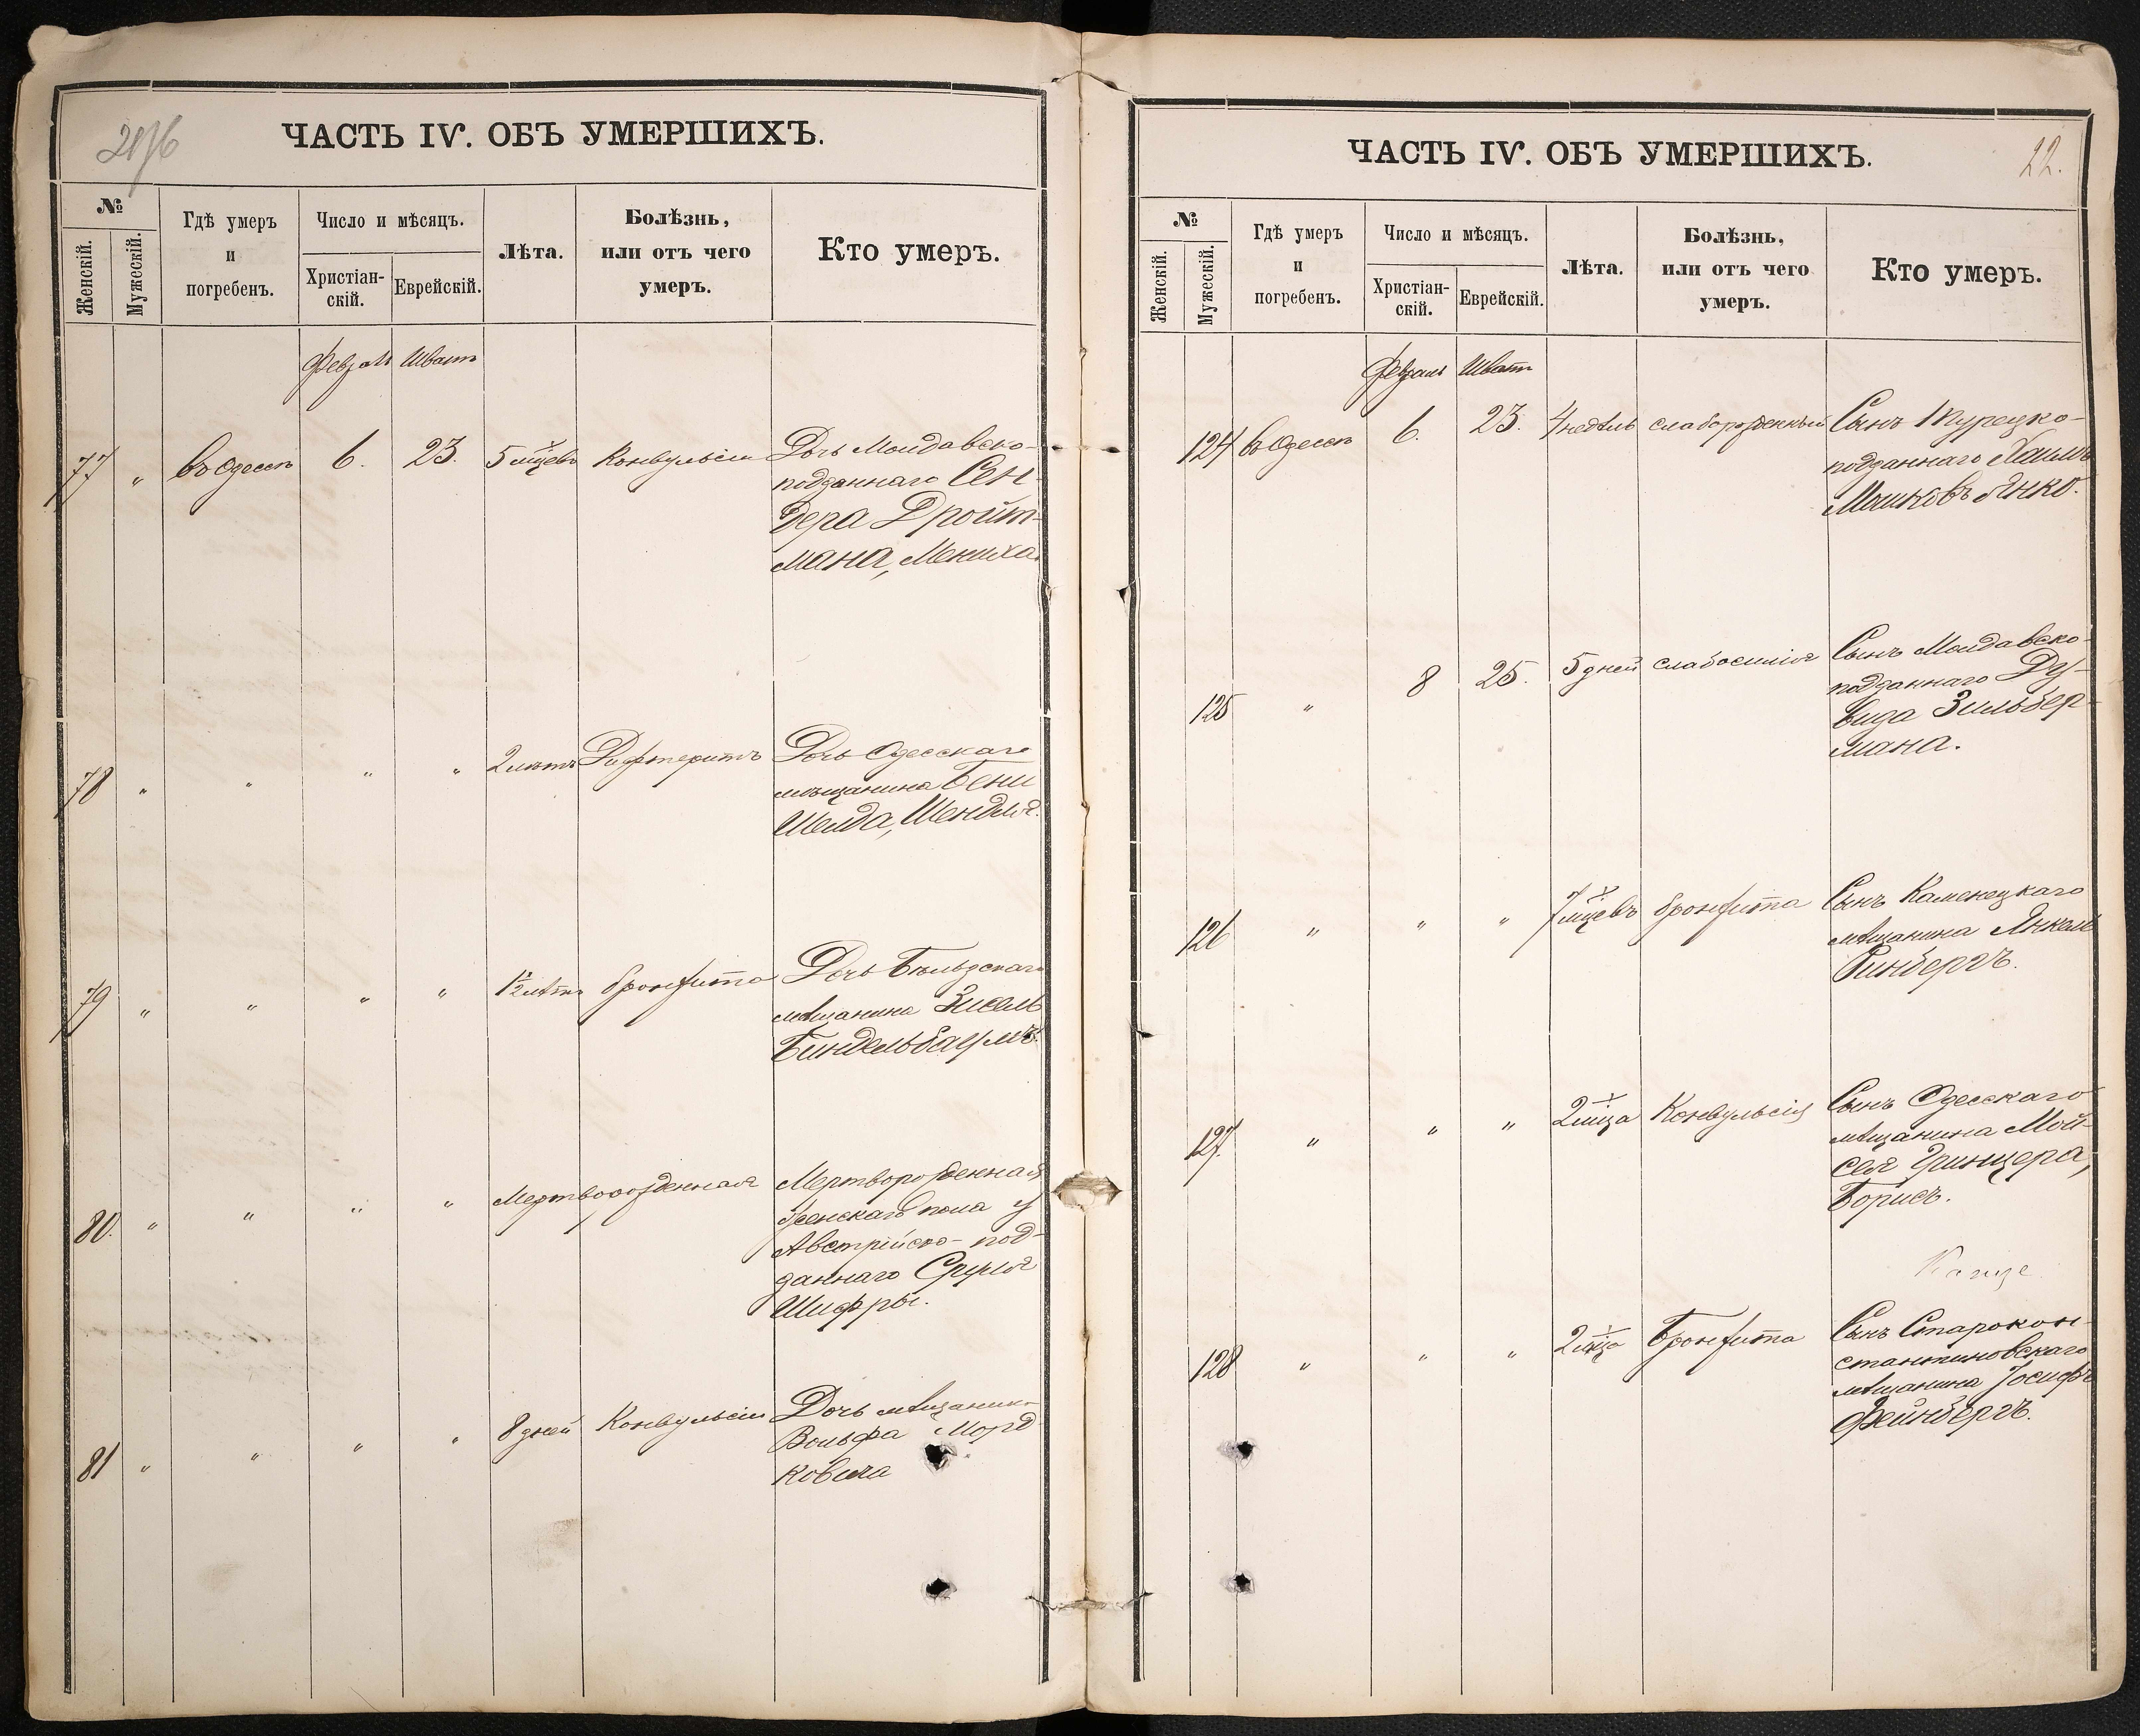 ЧАСТЬ IV. ОБЪ УМЕРШИХЪ.
№
Женскій.
Мужескій.
Гдѣ умеръ
и
погребенъ.
Число и мѣсяцъ.
Христіан-
скій.
Еврейскій.
Лѣта.
Болѣзнь,
или отъ чего
умеръ.
Кто умеръ.
Февраль Шватъ
77 " въ Одессѣ 6. 23. 5 мцевъ Конвульсіи Дочь Молдавско-
подданнаго Сен-
дера Дройт-
мана, Мениха.
78 " " " " 2 лѣтъ Дифтеритъ Дочь Одесскаго
мѣщанина Бени
Шелда, Шендля.
79 " " " " 1½ лѣтъ бронхита Дочь Бѣльдскаго
мѣщанина Зисель
Биндельбаумъ.
80. " " " " Мертворожденная Мертворожденная
женскаго пола у
Австрійско-под-
даннаго Сруля
Шифры.
81 " " " " 8 дней Конвульсіи Дочь мѣщанина
Вольфа Морд
ковича
ЧАСТЬ IV. ОБЪ УМЕРШИХЪ.
22.
№
Женскій.
Мужескій.
Гдѣ умеръ
и
погребенъ.
Число и мѣсяцъ.
Христіан-
скій.
Еврейскій.
Лѣта.
Болѣзнь,
или отъ чего
умеръ.
Кто умеръ.
Февраль Шватъ
124 въ Одессѣ 6. 23. 4 недѣль слаборожденный Сынъ Турецко-
подданнаго Хаимъ
Мошковъ Янко.
125 " 8 25. 5 дней слабосилія Сынъ Молдавско-
подданнаго Ду-
вида Зильбер-
мана.
126 " " " 7 мцевъ бронхита Сынъ Каменецкаго
мѣщанина Янкель
Ринбергъ.
127. " " " 2 мца Конвульсія Сынъ Одесскаго
мѣщанина Мой-
сея Гринцера,
Борисъ.
128 " " " 2 мца Бронхита Сынъ Старокон-
стантиновскаго
мѣщанина Іосифъ
Фейнбергъ.